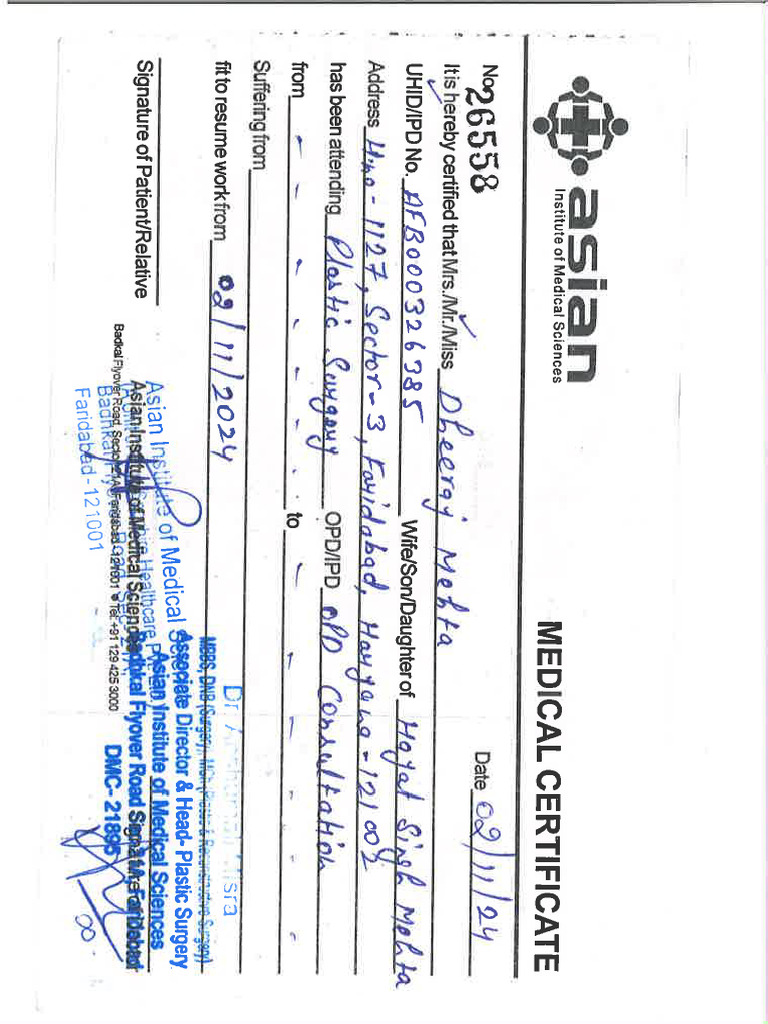 asian
Institute of Medical Sciences
MEDICAL CERTIFICATE
No. 26558
Date 02/11/24
It is hereby certified that Mrs./Mr./Miss Dheeraj Mehta
UHID/IPD No. AFB000326385 Wife/Son/Daughter of Hayat Singh Mehta
Address H.no - 1127, Sector - 3, Faridabad, Haryana - 121002
has been attending Plastic Surgery OPD/IPD OPD Consultation
from to
Suffering from
fit to resume work from 02/11/2024
Dr. Misra
MBBS, DNB (Surgery), MCh (Plastic & Reconstructive Surgery)
Associate Director & Head- Plastic Surgery
Asian Institute of Medical Sciences
Badhkal Flyover Road
DMC- 21895
Signature of Patient/Relative
Asian Institute of Medical
Faridabad - 121001
Asian Institute of Medical Sciences
Badkal Flyover Road, Sector 21A, Faridabad-121001 Tel.: +91 129 425 3000